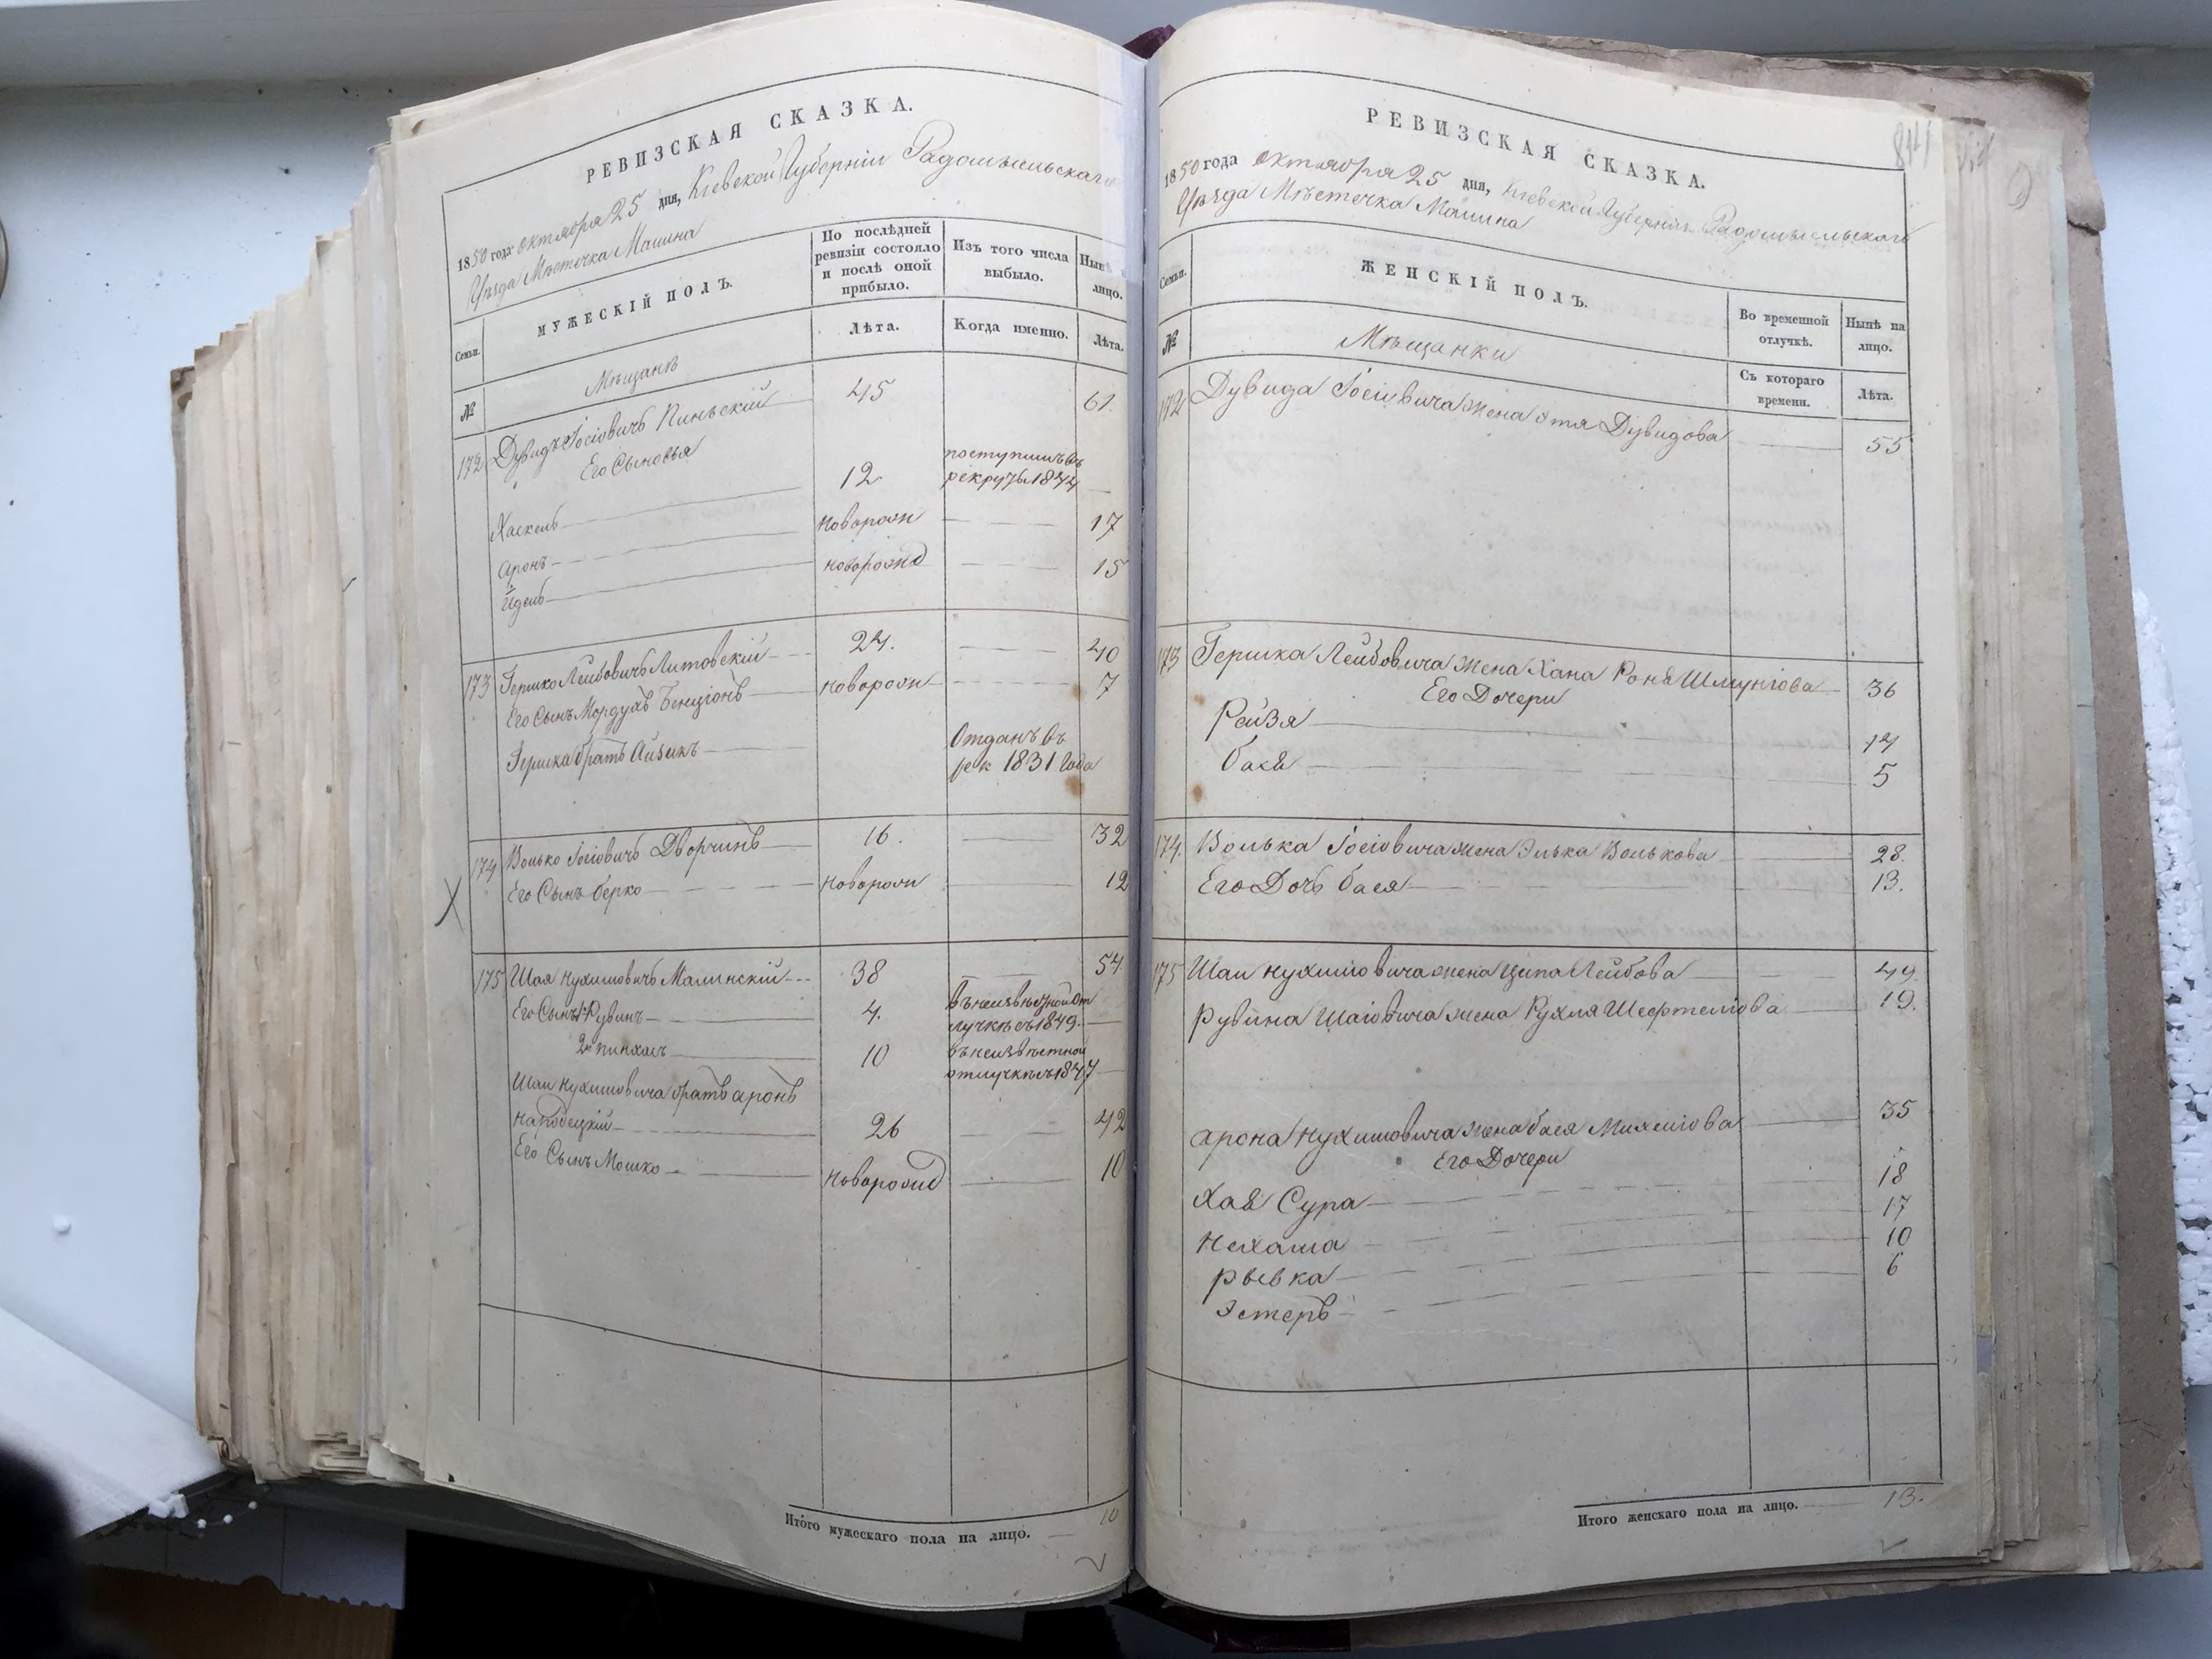 РЕВИЗСКАЯ СКАЗКА.
1850 года октября 25 дня, Кіевской Губерніи Радомысльскаго
Уѣзда Мѣстечка Малина
Семьи.
МУЖЕСКІЙ ПОЛЪ.
По послѣдней ревизіи состояло и послѣ оной прибыло.
Изъ того числа выбыло.
Нынѣ на лицо.
№
Мѣщанѣ
Лѣта.
Когда именно.
Лѣта.
172 Дувидъ Іосіовичъ Пинскій 45 61.
Его Сыновья
Хаскель 12 поступилъ въ рекруты 1844
Аронъ новорожд 17
Йдель новорожд 15
173 Гершко Лейбовичъ Литовскій 24. 40
Его Сынъ Мордухъ Бенціонъ новорожд 7
Гершка братъ Айзикъ Отданъ въ рек 1831 года
174 Волько Іосіовичъ Дворчинъ 16. 32
Х Его Сынъ Берко новорожд 12
175 Шая Нухимовичъ Малинскій 38 54
Его Сынъ 1й Рувинъ 4. въ неизвѣстной отлучкѣ съ 1849.
2й Пинхасъ 10 въ неизвѣстной отлучкѣ съ 1847
Шаи Нухимовича братъ Аронъ
26 42
Его Сынъ Мошко новорожд 10
Итого мужескаго пола на лицо. 10
РЕВИЗСКАЯ СКАЗКА.
841
1850 года октября 25 дня, Кіевской Губерніи Радомысльскаго
Уѣзда Мѣстечка Малина
Семьи.
ЖЕНСКІЙ ПОЛЪ.
Во временной отлучкѣ.
Нынѣ на лицо.
№
Мѣщанки
Съ котораго времени.
Лѣта.
172 Дувида Іосіовича жена Этя Дувидова 55
173 Гершка Лейбовича жена Хана Роня Шмуніова 36
Его Дочери
Рейзя 14
Бася 5
174. Волька Іосіовича жена Элька Волькова 28.
Его Дочь Бася 13.
175 Шаи Нухимовича жена Ципа Лейбова 49.
Рувина Шаіовича жена Рухля Шефтеліова 19.
Арона Нухимовича жена Бася Михеліова 35
Его Дочери
Хая Сура 18
Нехама 17
Рывка 10
Эстеръ 6
Итого женскаго пола на лицо. 13.